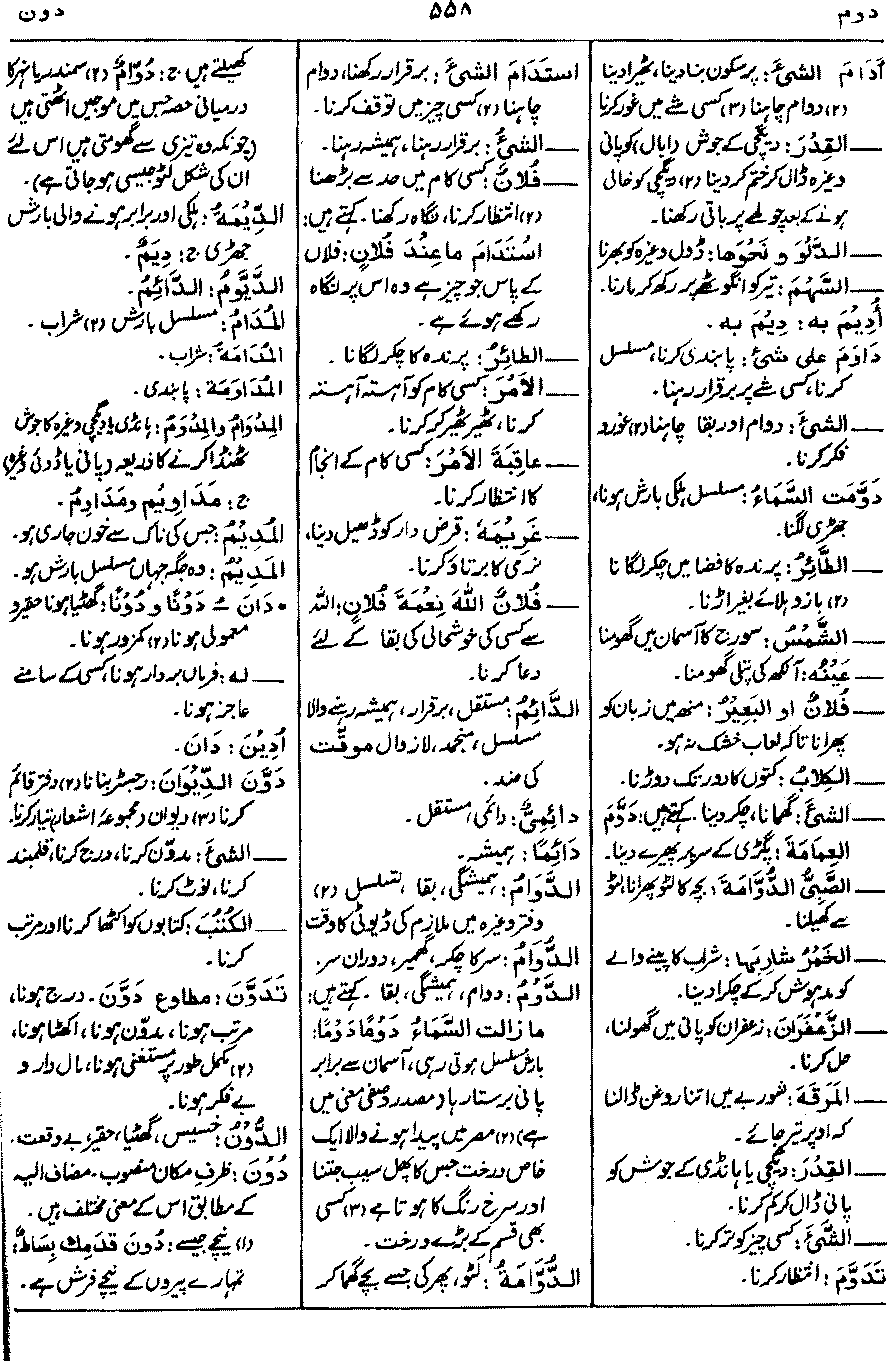 دوم
۵۵۸
دون
أَدَامَ الشئَ: پرسکون بنا دینا، ٹھیرا دینا
(۲) دوام چاہنا (۳) کسی شے میں غور کرنا
ــــ القِدْرَ: دیگچی کے جوش (ابال) کو پانی
وغیرہ ڈال کر ختم کر دینا (۲) دیگچی کو خالی
ہونے کے بعد چولھے پر باقی رکھنا۔
ــــ الدَّلْوَ و نَحْوَها: ڈول وغیرہ کو بھرنا
ــــ السَّهْمَ: تیر کو انگوٹھے پر رکھ کر مارنا۔
أُدِيْمَ به: دِيْمَ به۔
دَاوَمَ على شئ: پابندی کرنا، مسلسل
کرنا، کسی شے پر برقرار رہنا۔
ــــ الشئَ: دوام اور بقا چاہنا (۲) غور و
فکر کرنا۔
دَوَّمَت السَّمَاءُ: مسلسل ہلکی بارش ہونا،
جھڑی لگنا۔
ــــ الطَّائِرُ: پرندہ کا فضا میں چکر لگانا
(۲) بازو ہلائے بغیر اڑنا۔
ــــ الشَّمْسُ: سورج کا آسمان میں گھومنا
ــــ عَيْنُه: آنکھ کی پتلی گھومنا۔
ــــ فُلَانٌ او البَعِيْرُ: منھ میں زبان کو
پھرانا تاکہ لعاب خشک نہ ہو۔
ــــ الكِلَابُ: کتوں کا دور تک دوڑنا۔
ــــ الشئَ: گھمانا، چکر دینا۔ کہتے ہیں: دَوَّمَ
العِمَامَةَ: پگڑی کے سر پر پھیرے دینا۔
ــــ الصَّبِيُّ الدُّوَّامَةَ: بچہ کا لٹو پھرانا، لٹو
سے کھیلنا۔
ــــ الخَمْرُ شارِبَها: شراب کا پینے والے
کو مدہوش کر کے چکرا دینا۔
ــــ الزَّعْفَرَانَ: زعفران کو پانی میں گھولنا،
حل کرنا۔
ــــ المَرَقَةَ: شوربے میں اتنا روغن ڈالنا
کہ اوپر تیر جائے۔
ــــ القِدْرَ: دیگچی یا ہانڈی کے جوش کو
پانی ڈال کر کم کرنا۔
ــــ الشَّئَ: کسی چیز کو تر کرنا۔
تَدَوَّمَ: انتظار کرنا۔
اسْتَدَامَ الشئَ: برقرار رکھنا، دوام
چاہنا (۲) کسی چیز میں توقف کرنا۔
ــــ الشئُ: برقرار رہنا، ہمیشہ رہنا۔
ــــ فُلَانٌ: کسی کام میں حد سے بڑھنا
(۲) انتظار کرنا، نگاہ رکھنا۔ کہتے ہیں:
اسْتَدَامَ ما عِنْدَ فُلَانٍ: فلاں
کے پاس جو چیز ہے وہ اس پر نگاہ
رکھے ہوئے ہے۔
ــــ الطائِرُ: پرندہ کا چکر لگانا۔
ــــ الأَمْرَ: کسی کام کو آہستہ آہستہ
کرنا، ٹھیر ٹھیر کر کرنا۔
ــــ عاقِبَةَ الأَمْرِ: کسی کام کے انجام
کا انتظار کرنا۔
ــــ غَرِيْمَهُ: قرض دار کو ڈھیل دینا،
نرمی کا برتاؤ کرنا۔
ــــ فُلَانٌ اللهَ نِعْمَةَ فُلَانٍ: اللہ
سے کسی کی خوشحالی کی بقا کے لئے
دعا کرنا۔
الدَّائِمُ: مستقل، برقرار، ہمیشہ رہنے والا
مسلسل، منجمد، لازوال موقّت
کی ضد۔
دائِمِيٌّ: دائمی، مستقل۔
دَائِمًا: ہمیشہ۔
الدَّوَامُ: ہمیشگی، بقا، تسلسل (۲)
دفتر وغیرہ میں ملازم کی ڈیوٹی کا وقت
الدُّوَامُ: سر کا چکر، گھمیر، دوران سر۔
الدَّوْمُ: دوام، ہمیشگی، بقا۔ کہتے ہیں:
ما زالت السَّمَاءُ دَوْمًا دَوْمًا:
بارش مسلسل ہوتی رہی، آسمان سے برابر
پانی برستا رہا (مصدر وصفی معنی میں
ہے) (۲) مصر میں پیدا ہونے والا ایک
خاص درخت جس کا پھل سیب جتنا
اور سرخ رنگ کا ہوتا ہے (۳) کسی
بھی قسم کے بڑے درخت۔
الدُّوَّامَةُ: لٹو، پھرکی جسے بچے گھما کر
کھیلتے ہیں۔ ج: دُوَّامٌ (۲) سمندر یا نہر کا
درمیانی حصہ جس میں موجیں اٹھتی ہیں
(چونکہ وہ تیزی سے گھومتی ہیں اس لئے
ان کی شکل لٹو جیسی ہو جاتی ہے)۔
الدِّيْمَةُ: ہلکی اور برابر ہونے والی بارش
جھڑی ج: دِيَمٌ۔
الدَّيُّومُ: الدَّائِمُ۔
المُدَامُ: مسلسل بارش (۲) شراب۔
المُدَامَةُ: شراب۔
المُدَاوَمَة: پابندی۔
المِدْوَامُ والمِدْوَمُ: ہانڈی (دیگچی) وغیرہ کا جوش
ٹھنڈا کرنے کا ذریعہ (پانی یا ڈوئی وغیرہ)
ج: مَدَاوِيْم ومَدَاوِمُ۔
المُدِيْمُ: جس کی ناک سے خون جاری ہو۔
المَدِيْمُ: وہ جگہ جہاں مسلسل بارش ہو۔
• دَانَ ـُ دَوْنًا و دُوْنًا: گھٹیا ہونا حقیر و
معمولی ہونا (۲) کمزور ہونا۔
ــــ له: فرماں بردار ہونا، کسی کے سامنے
عاجز ہونا۔
اُدِيْنَ: دَانَ۔
دَوَّنَ الدِّيْوَانَ: رجسٹر بنانا (۲) دفتر قائم
کرنا (۳) دیوان (مجموعۂ اشعار) تیار کرنا۔
ــــ الشئَ: مدوّن کرنا، درج کرنا، قلمبند
کرنا، نوٹ کرنا۔
ــــ الكُتُبَ: کتابوں کو اکٹھا کرنا اور مرتب
کرنا۔
تَدَوَّنَ: مطاوع دَوَّنَ۔ درج ہونا،
مرتب ہونا، مدوّن ہونا، اکٹھا ہونا،
(۲) مکمل طور پر مستغنی ہونا، مال دار و
بے فکر ہونا۔
الدُّوْنُ: خسیس، گھٹیا، حقیر، بے وقعت۔
دُوْنَ: ظرفِ مکان منصوب۔ مضاف الیہ
کے مطابق اس کے معنی مختلف ہیں۔
(۱) نیچے جیسے: دُونَ قَدَمِك بِسَاطٌ:
تمہارے پیروں کے نیچے فرش ہے۔